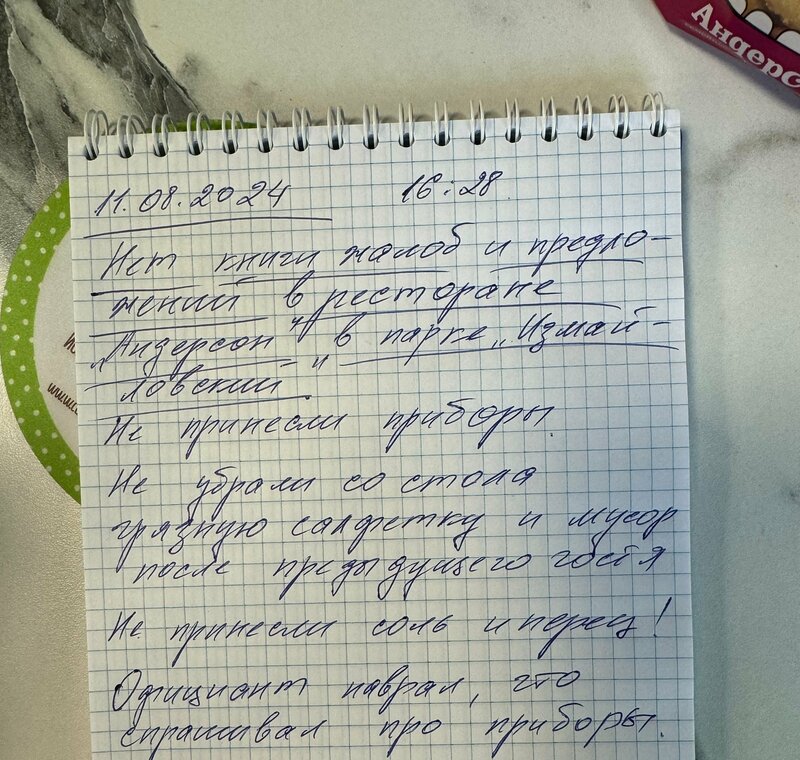 Андерс
11.08.2024 16:28
Нет книги жалоб и предло-
жений в ресторане
„Андерсон" в парке „Измай-
ловский".
Не принесли приборы.
Не убрали со стола
грязную салфетку и мусор
после предыдущего гостя
Не принесли соль и перец!
Официант наврал, что
спрашивал про приборы.